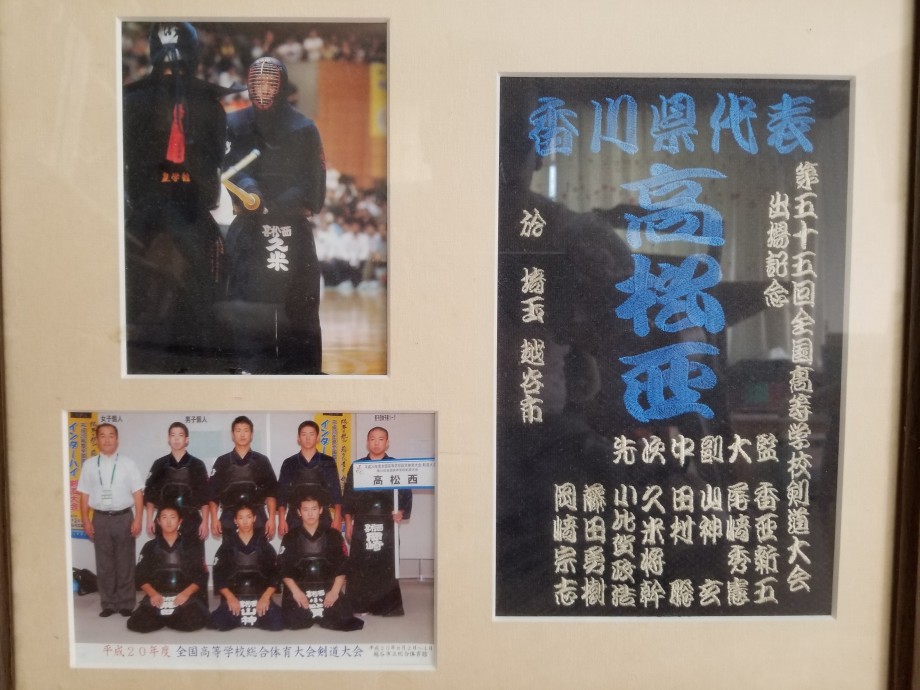 高松西
久米
香川県代表
高松西
第五十五回全国高等学校剣道大会
出場記念
監 香西新五
大 尾崎秀憲
副 山神 玄
中 田村 勝
次 久米将幹
先 小比賀政浩
藤田勇樹
岡崎宗志
於 埼玉 越谷市
女子個人
男子個人
インターハイ
インターハイ
高松西
山神
平成20年度 全国高等学校総合体育大会剣道大会